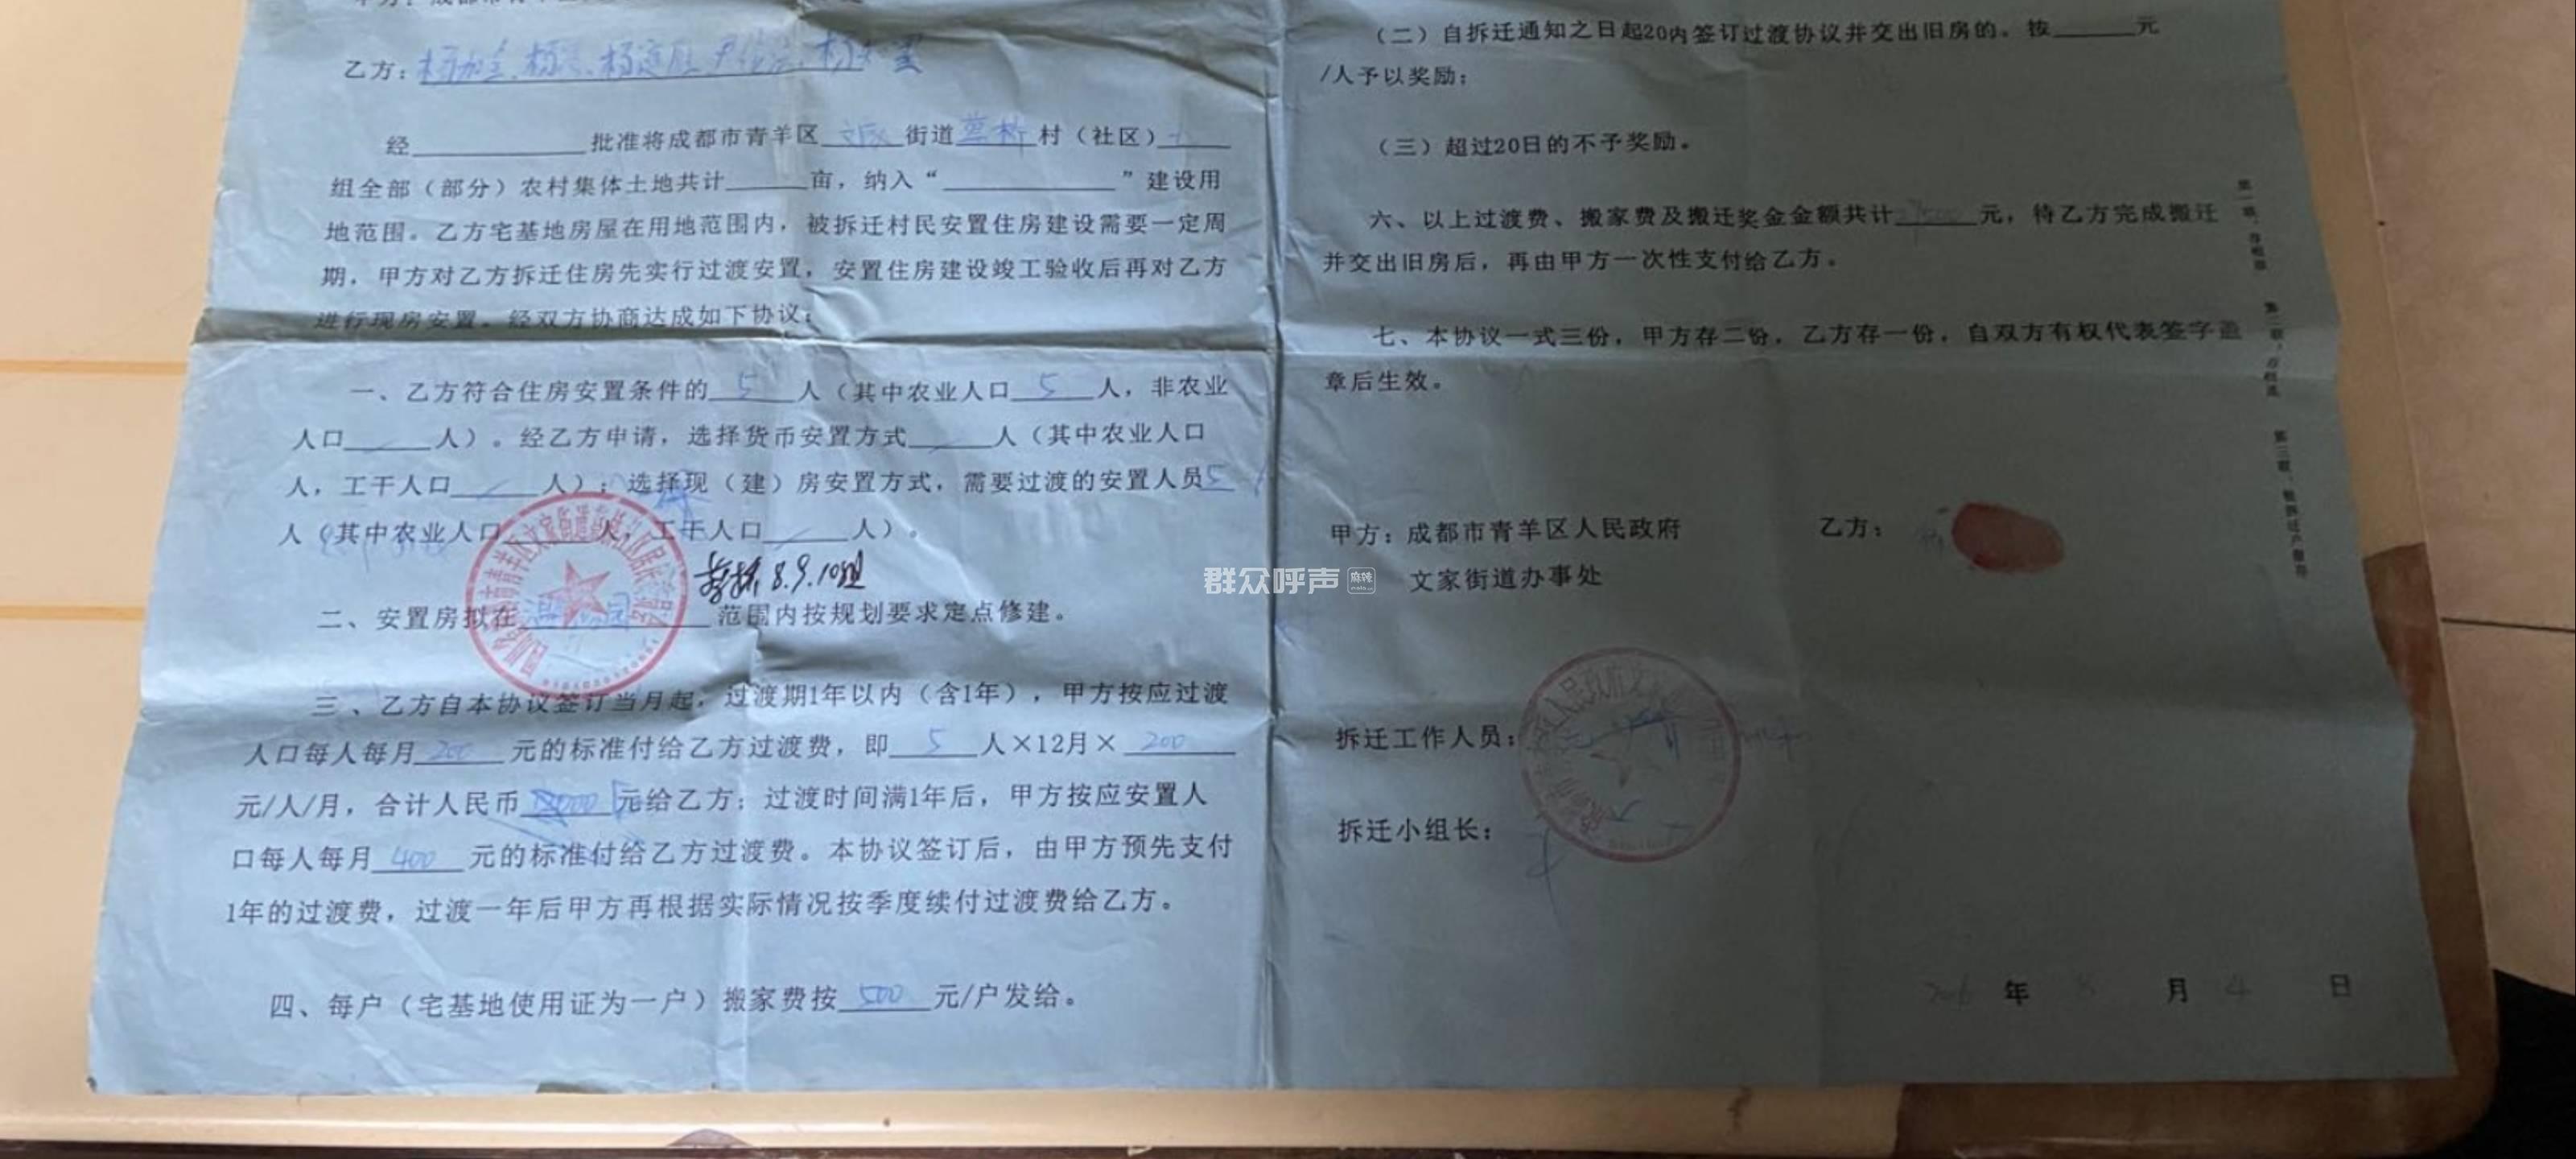 乙方：
经______批准将成都市青羊区 文家 街道 蔡桥 村（社区）
组全部（部分）农村集体土地共计______亩，纳入“______”建设用
地范围。乙方宅基地房屋在用地范围内，被拆迁村民安置住房建设需要一定周
期，甲方对乙方拆迁住房先实行过渡安置，安置住房建设竣工验收后再对乙方
进行现房安置。经双方协商达成如下协议：
一、乙方符合住房安置条件的 5 人（其中农业人口 5 人，非农业
人口 / 人）。经乙方申请，选择货币安置方式 / 人（其中农业人口
人，工干人口 / 人）；选择现（建）房安置方式，需要过渡的安置人员 5
人（其中农业人口______人，工干人口 / 人）。
蔡桥8.9.10组
二、安置房拟在______范围内按规划要求定点修建。
三、乙方自本协议签订当月起，过渡期1年以内（含1年），甲方按应过渡
人口每人每月 200 元的标准付给乙方过渡费，即 5 人×12月× 200
元/人/月，合计人民币 元给乙方；过渡时间满1年后，甲方按应安置人
口每人每月 400 元的标准付给乙方过渡费。本协议签订后，由甲方预先支付
1年的过渡费，过渡一年后甲方再根据实际情况按季度续付过渡费给乙方。
四、每户（宅基地使用证为一户）搬家费按 500 元/户发给。
（二）自拆迁通知之日起20内签订过渡协议并交出旧房的。按______元
/人予以奖励；
（三）超过20日的不予奖励。
六、以上过渡费、搬家费及搬迁奖金金额共计 元，待乙方完成搬迁
并交出旧房后，再由甲方一次性支付给乙方。
七、本协议一式三份，甲方存二份，乙方存一份，自双方有权代表签字盖
章后生效。
甲方：成都市青羊区人民政府
文家街道办事处
乙方：
拆迁工作人员：
拆迁小组长：
年 8 月 4 日
群众呼声